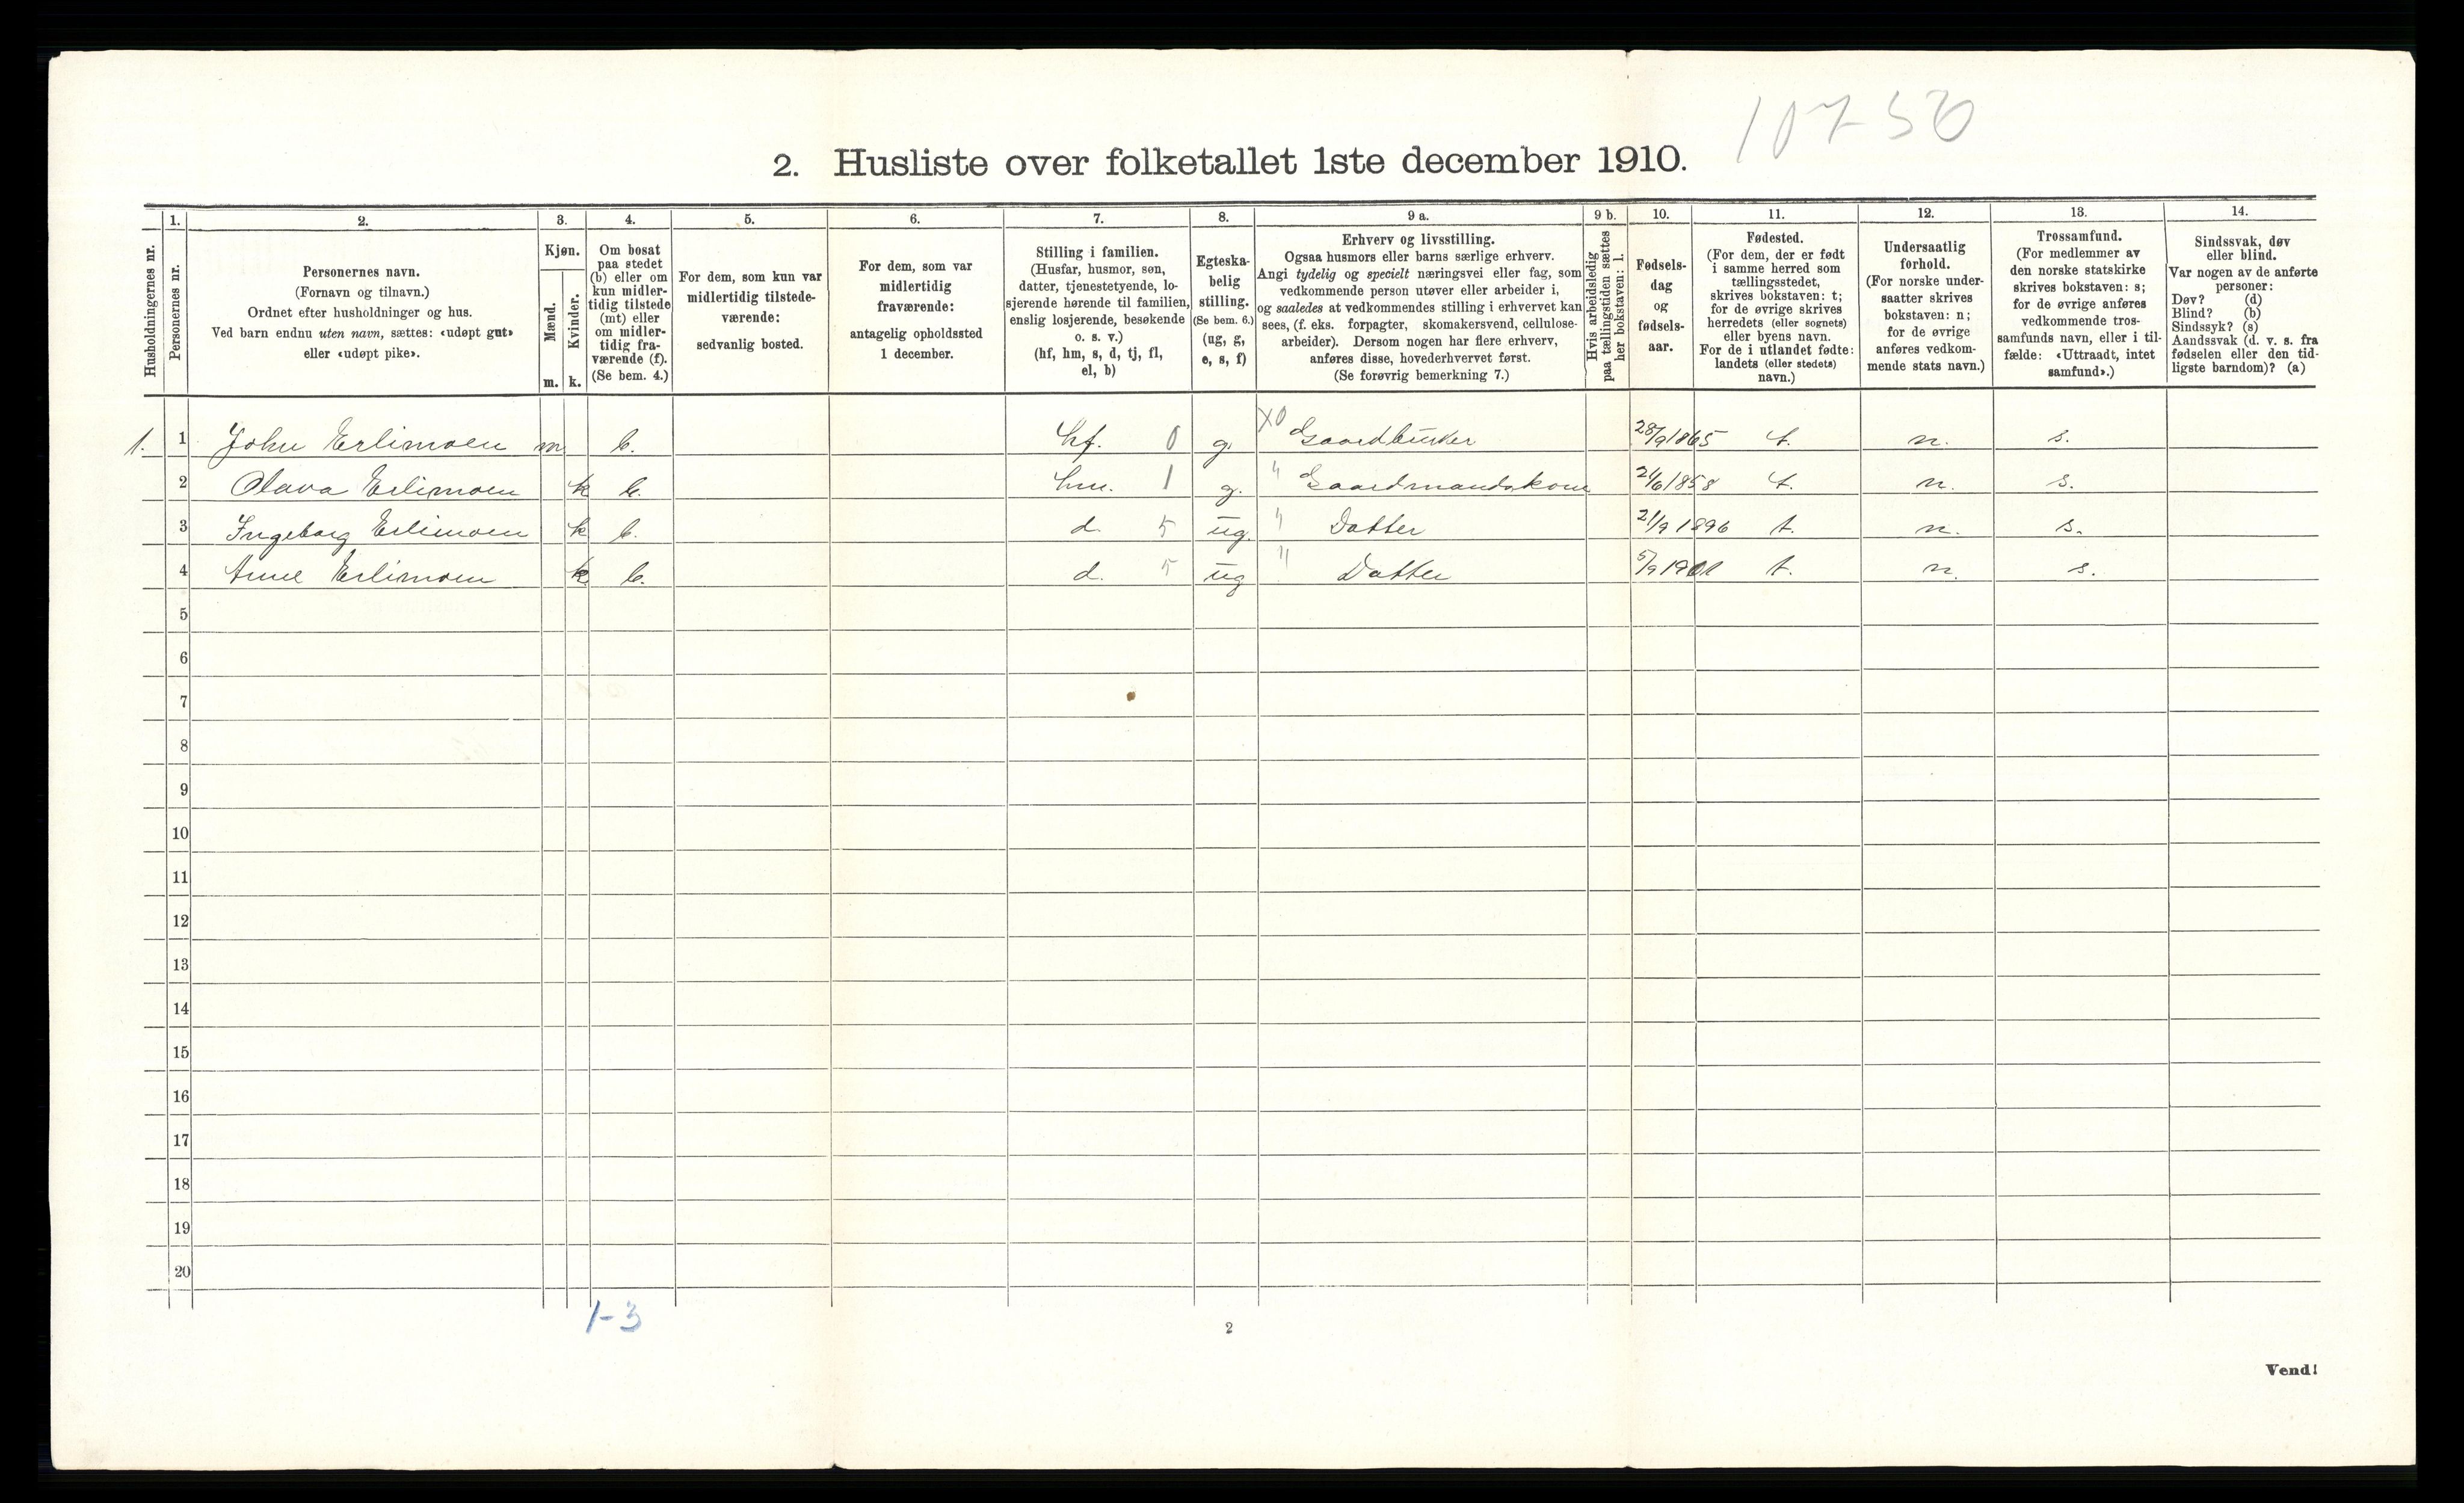 10750
2. Husliste over folketallet 1ste december 1910.
Husholdningernes nr.
1.
Personernes nr.
2.
Personernes navn.
(Fornavn og tilnavn.)
Ordnet efter husholdninger og hus.
Ved barn endnu uten navn, sættes: «udøpt gut»
eller «udøpt pike».
3.
Kjøn.
Mænd.
Kvinder.
m. k.
4.
Om bosat
paa stedet
(b) eller om
kun midler-
tidig tilstede
(mt) eller
om midler-
tidig fra-
værende (f).
(Se bem. 4.)
5.
For dem, som kun var
midlertidig tilstede-
værende:
sedvanlig bosted.
6.
For dem, som var
midlertidig
fraværende:
antagelig opholdssted
1 december.
7.
Stilling i familien.
(Husfar, husmor, søn,
datter, tjenestetyende, lo-
sjerende hørende til familien,
enslig losjerende, besøkende
o. s. v.)
(hf, hm, s, d, tj, fl,
el, b)
8.
Egteska-
belig
stilling.
(Se bem. 6.)
(ug, g,
e, s, f)
9 a.
Erhverv og livsstilling.
Ogsaa husmors eller barns særlige erhverv.
Angi tydelig og specielt næringsvei eller fag, som
vedkommende person utøver eller arbeider i,
og saaledes at vedkommendes stilling i erhvervet kan
sees, (f. eks. forpagter, skomakersvend, cellulose-
arbeider). Dersom nogen har flere erhverv,
anføres disse, hovederhvervet først.
(Se forøvrig bemerkning 7.)
9 b.
Hvis arbeidsledig
paa tællingstiden sættes
her bokstaven: l.
10.
Fødsels-
dag
og
fødsels-
aar.
11.
Fødested.
(For dem, der er født
i samme herred som
tællingsstedet,
skrives bokstaven: t;
for de øvrige skrives
herredets (eller sognets)
eller byens navn.
For de i utlandet fødte:
landets (eller stedets)
navn.)
12.
Undersaatlig
forhold.
(For norske under-
saatter skrives
bokstaven: n;
for de øvrige
anføres vedkom-
mende stats navn.)
13.
Trossamfund.
(For medlemmer av
den norske statskirke
skrives bokstaven: s;
for de øvrige anføres
vedkommende tros-
samfunds navn, eller i til-
fælde: «Uttraadt, intet
samfund».)
14.
Sindssvak, døv
eller blind.
Var nogen av de anførte
personer:
Døv? (d)
Blind? (b)
Sindssyk? (s)
Aandssvak (d. v. s. fra
fødselen eller den tid-
ligste barndom)? (a)
1. 1 John Erlimoen m b. hf. 0 g. X0 Gaardbruker 28/9 1865 t. n. s.
2 Olava Erlimoen k b. hm. 1 g. " Gaardmandskone 24/6 1858 t. n. s.
3 Ingeborg Erlimoen k b. d. 5 ug. " Datter 21/9 1896 t. n. s.
4 Anne Erlimoen k b. d. 5 ug " Datter 5/9 1901 t. n. s.
5
6
7
8
9
10
11
12
13
14
15
16
17
18
19
20
1-3
2
Vend!